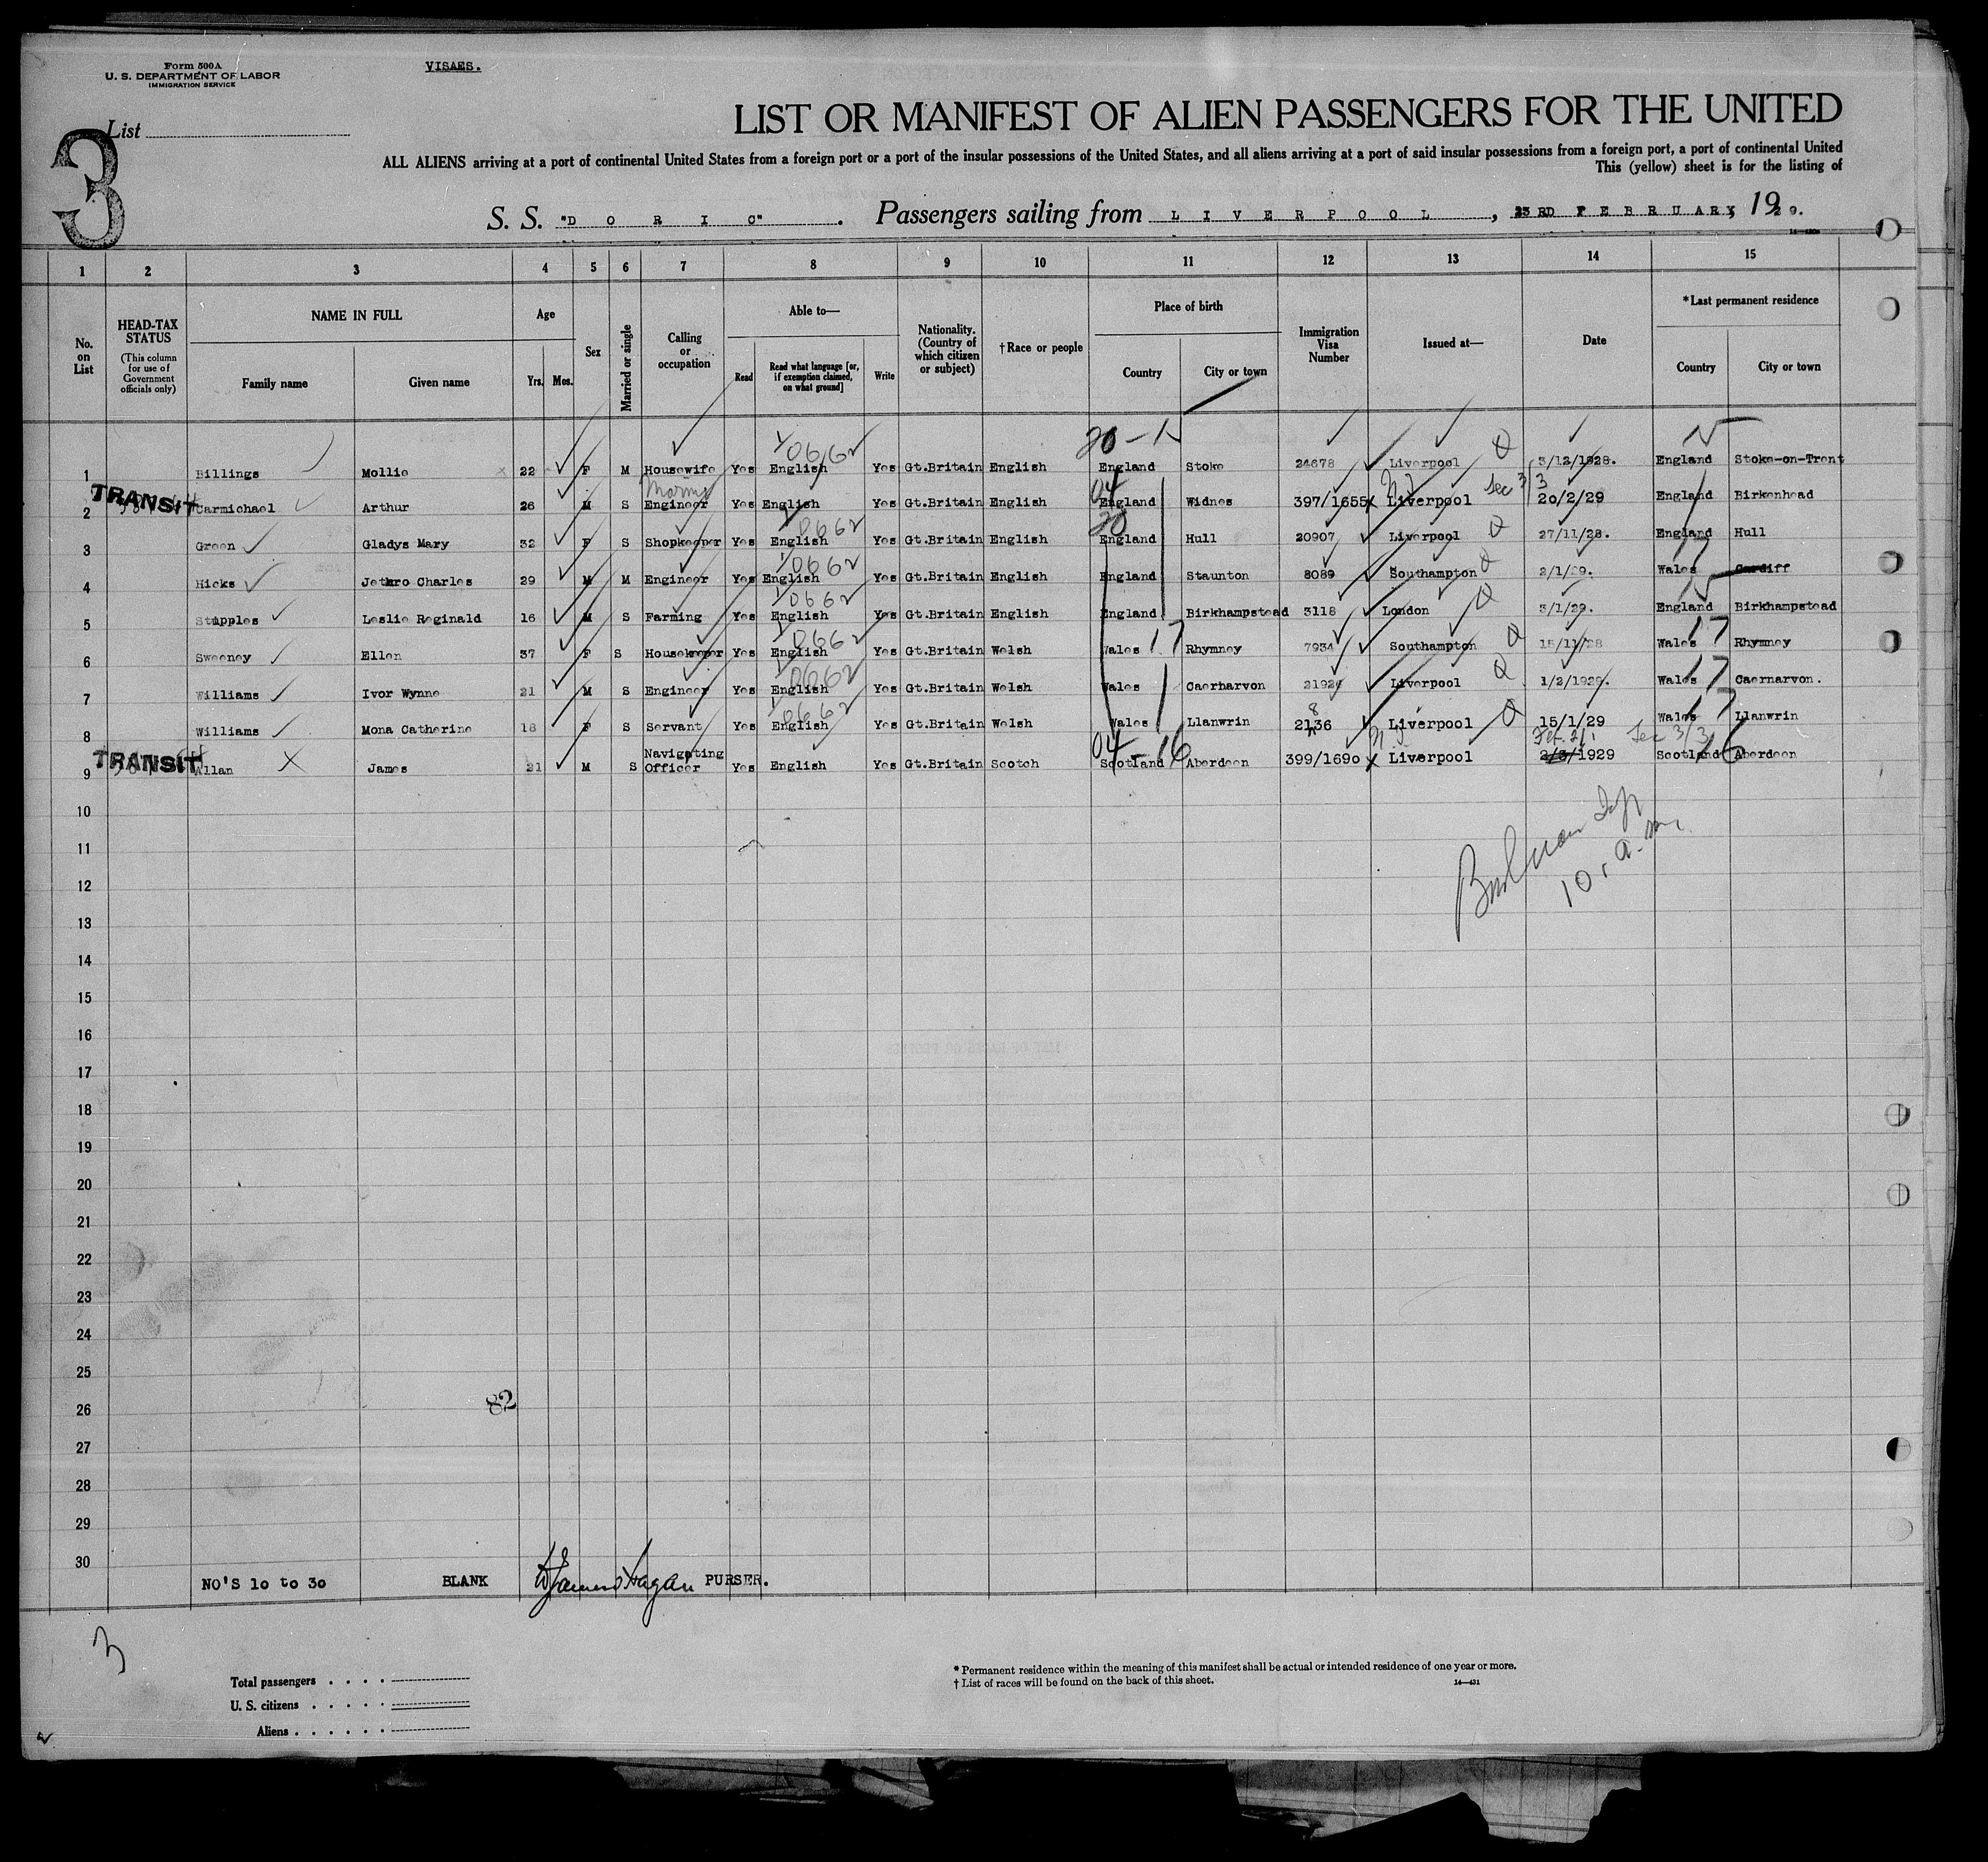 Form 500A
U. S. DEPARTMENT OF LABOR
IMMIGRATION SERVICE
VISAES.
List
3
LIST OR MANIFEST OF ALIEN PASSENGERS FOR THE UNITED
ALL ALIENS arriving at a port of continental United States from a foreign port or a port of the insular possessions of the United States, and all aliens arriving at a port of said insular possessions from a foreign port, a port of continental United
This (yellow) sheet is for the listing of
S. S. "D O R I C". Passengers sailing from L I V E R P O O L, 23 RD F E B R U A R Y 1929.
1 2 3 4 5 6 7 8 9 10 11 12 13 14 15
No. on List
HEAD-TAX STATUS
(This column for use of Government officials only)
NAME IN FULL
Family name Given name
Age
Yrs. Mos.
Sex
Married or single
Calling or occupation
Able to—
Read
Read what language [or, if exemption claimed, on what ground]
Write
Nationality. (Country of which citizen or subject)
†Race or people
Place of birth
Country City or town
Immigration Visa Number
Issued at—
Date
*Last permanent residence
Country City or town
20 - 15
1 Billings Mollie 22 F M Housewife Yes English Yes Gt.Britain English England Stoke 24678 Liverpool 3/12/1928. England Stoke-on-Trent
TRANSIT
2 Carmichael Arthur 26 M S Engineer Yes English Yes Gt.Britain English England Widnes 397/1655 Liverpool Sec 3/3 20/2/29 England Birkenhead
3 Green Gladys Mary 32 F S Shopkeeper Yes English Yes Gt.Britain English England Hull 20907 Liverpool 27/11/28. England Hull
4 Hicks Jethro Charles 29 M M Engineer Yes English Yes Gt.Britain English England Staunton 8089 Southampton 2/1/29. Wales Cardiff
5 Stupples Leslie Reginald 16 M S Farming Yes English Yes Gt.Britain English England Birkhampstead 3118 London 3/1/29. England Birkhampstead
6 Sweeney Ellen 37 F S Housekeeper Yes English Yes Gt.Britain Welsh Wales 17 Rhymney 7934 Southampton 15/11/28 Wales 17 Rhymney
7 Williams Ivor Wynne 21 M S Engineer Yes English Yes Gt.Britain Welsh Wales Caernarvon 21924 Liverpool 1/2/1929. Wales 17 Caernarvon.
8 Williams Mona Catherine 18 F S Servant Yes English Yes Gt.Britain Welsh Wales Llanwrin 21836 Liverpool 15/1/29 Wales 17 Llanwrin
TRANSIT
9 Allan James 21 M S Navigating Officer Yes English Yes Gt.Britain Scotch Scotland 04-16 Aberdeen 399/1690 Liverpool 1929 Scotland 16 Aberdeen
10
10. a.m.
11
12
13
14
15
16
17
18
19
20
21
22
23
24
25
26
82
27
28
29
30
NO'S 10 to 30 BLANK PURSER.
3
Total passengers
U. S. citizens
Aliens
* Permanent residence within the meaning of this manifest shall be actual or intended residence of one year or more.
† List of races will be found on the back of this sheet.
14—431